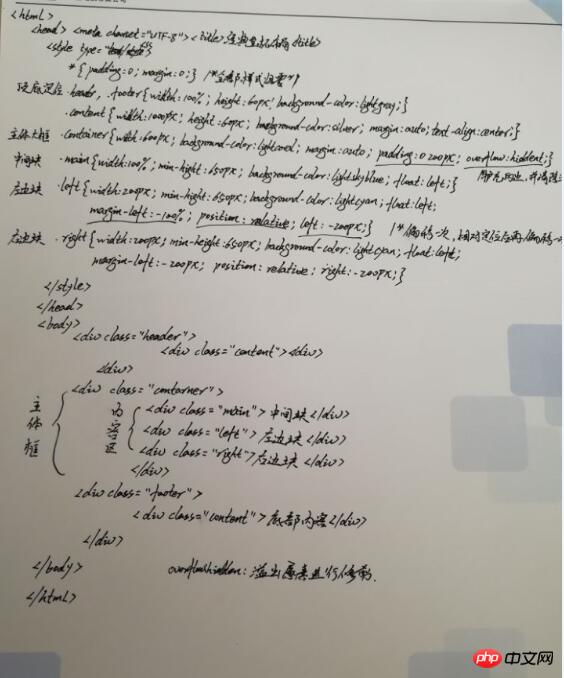 <html>
<head> <meta charset="UTF-8"> <title> </title>
<style type=
*{padding:0; margin:0;} /* */
.header, .footer{width:100%; height:60px; background-color:lightgray;}
.content{width:1000px; height:60px; background-color:silver; margin:auto; text-align:center;}
主体大框 .container{width:600px; background-color: margin:auto; padding:0 200px; overflow:hidden;}
中间块 .main{width:100%; min-height:650px; background-color:lightskyblue; float:left;}
左边块 .left{width:200px; min-height:650px; background-color:lightcyan; float:left;
margin-left:-100%; position:relative; left:-200px;}
.right{width:200px; min-height:650px; background-color:lightcyan; float:left;
margin-left:-200px; position:relative; right:-200px;}
</style>
</head>
<body>
<div class="header">
<div class="content"><div>
<div>
<div class="container">
主体框
内容区
<div class="main">中间块</div>
<div class="left">左边块</div>
<div class="right"> </div>
</div>
<div class="footer">
<div class="content">底部内容</div>
</div>
</body>
</html>
php中文网